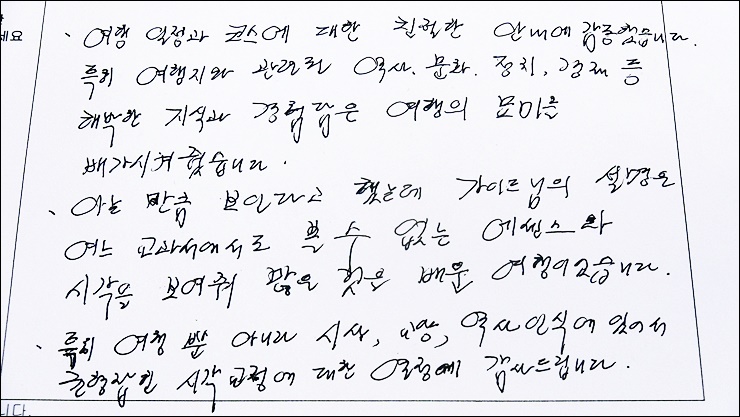 세요
· 여행 일정과 코스에 대한 친절한 안내에 감동했습니다.
특히 여행지와 관련된 역사. 문화. 정치, 경제 등
해박한 지식과 경험담은 여행의 묘미를
배가시켜 줬습니다.
· 아는 만큼 보인다고 했는데 가이드님의 설명은
여느 교과서에서도 볼 수 없는 에센스와
시각을 보여줘 많은 것은 배운 여행이었습니다.
· 특히 여행 뿐 아니라 시상, 교양, 역사인식에 있어서
균형잡힌 시각 교정에 대한 열정에 감사드립니다.
니다.